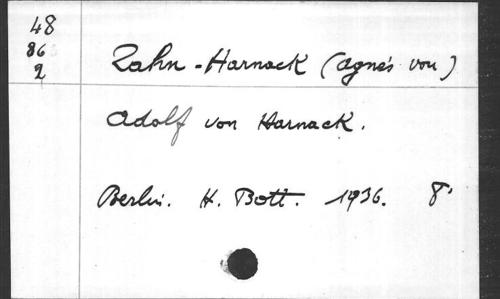 48
86
2
Zahn-Harnack (Agnes von)
Adolf von Harnack.
Berlin. H. Bott. 1936. 8°